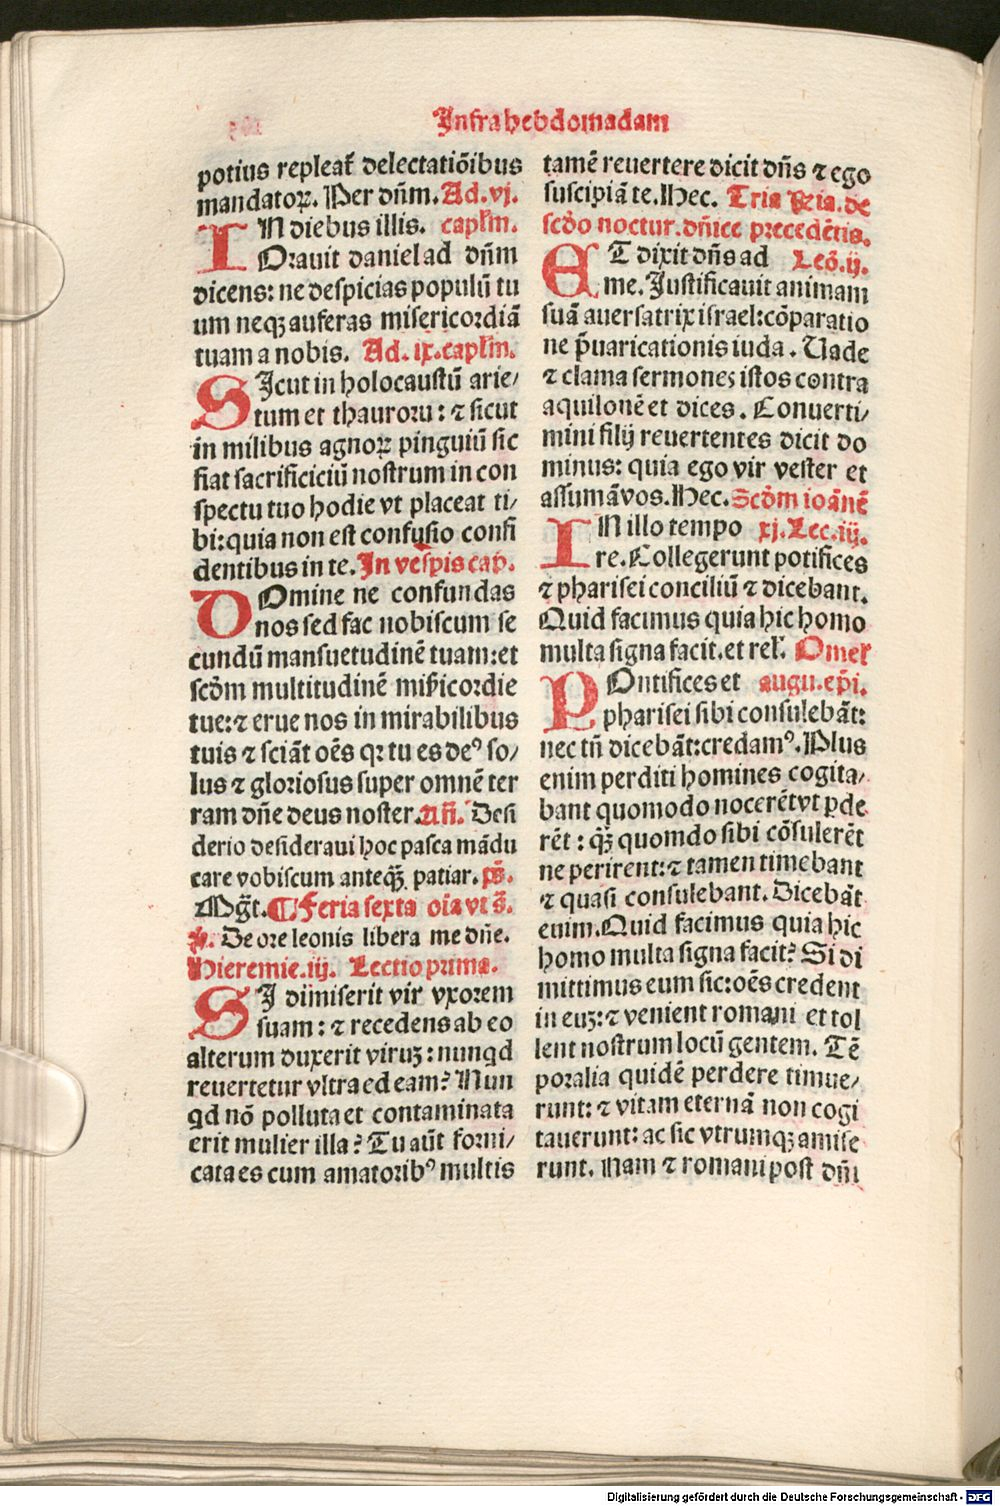 Infra hebdomadam
potius repleat᷑ delectatiōibus
mandatoꝝ. Per dn̄m. Ad. vj.
IN diebus illis. capl̄m.
Orauit daniel ad dn̄m
dicens: ne despicias populū tu
um neqꝫ auferas misericordiā
tuam a nobis. Ad. ix. capl̄m.
SIcut in holocaustū arie/
tum et thauroru: ⁊ sicut
in milibus agnoꝝ pinguiū sic
fiat sacrificiciū nostrum in con
spectu tuo hodie vt placeat ti/
bi: quia non est confusio confi
dentibus in te. In vesp̄is cap̄.
DOmine ne confundas
nos sed fac nobiscum se
cundū mansuetudinē tuam: et
scd̄m multitudinē mīsicordie
tue: ⁊ erue nos in mirabilibus
tuis ⁊ sciāt oēs qꝛ tu es deꝰ so/
lus ⁊ gloriosus super omnē ter
ram dn̄e deus noster. An̄. Desi
derio desideraui hoc pasca mādu
care vobiscum anteqꝫ̄ patiar. ps̄.
Mgt̄. ¶ Feria sexta oīa vt s̄.
℣. De ore leonis libera me dn̄e.
Hieremie. iij. Lectio prima.
SI dimiserit vir vxorem
suam: ⁊ recedens ab eo
alterum duxerit viruꝫ: nunqd
reuertetur vltra ed eam? Nun
qd nō polluta et contaminata
erit mulier illa? Tu aūt forni/
cata es cum amatoribꝰ multis
tamē reuertere dicit dn̄s ⁊ ego
suscipiā te. Hec. Tria Rīa. de
scd̄o noctur. dn̄ice precedētis.
ET dixit dn̄s ad Leō. ij.
me. Justificauit animam
suā auersatrix israel: cōparatio
ne p̄uaricationis iuda. Uade
⁊ clama sermones istos contra
aquilonē et dices. Conuerti/
mini filij reuertentes dicit do
minus: quia ego vir vester et
assumā vos. Hec. Scd̄m ioānē
IN illo tempo xj. Lec. iij.
re. Collegerunt potifices
⁊ pharisei conciliū ⁊ dicebant.
Quid facimus quia hic homo
multa signa facit. et rel̄. Omel̄
POntifices et augu. ep̄i.
pharisei sibi consulebāt:
nec tn̄ dicebāt: credamꝰ. Plus
enim perditi homines cogita/
bant quomodo nocerēt vt ꝑde
rēt: qꝫ̄ quomdo sibi cōsulerēt
ne perirent: ⁊ tamen timebant
⁊ quasi consulebant. Dicebāt
enim. Quid facimus quia hic
homo multa signa facit? Si di
mittimus eum sic: oēs credent
in euꝫ: ⁊ venient romani et tol
lent nostrum locū gentem. Tē
poralia quidē perdere timue/
runt: ⁊ vitam eternā non cogi
tauerunt: ac sic vtrumqꝫ amise
runt. Nam ⁊ romani post dn̄i
Digitalisierung gefördert durch die Deutsche Forschungsgemeinschaft - DFG